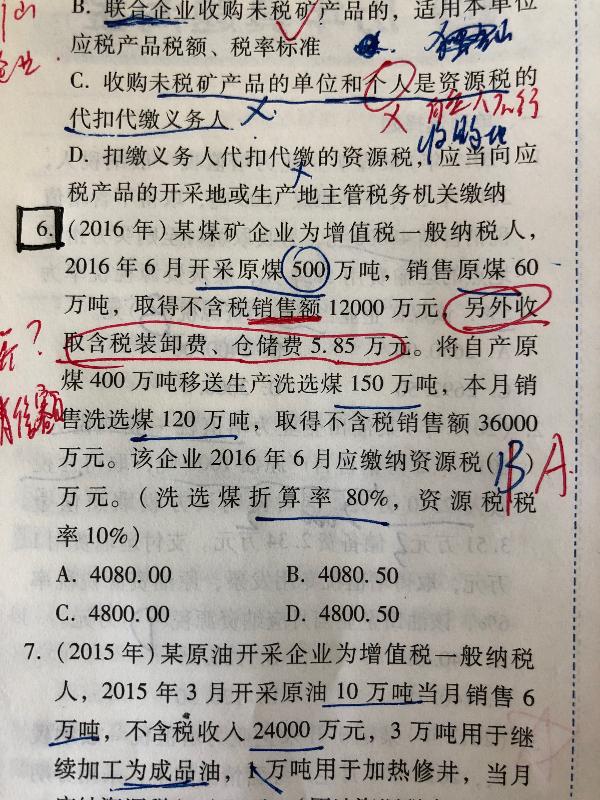 B. 联合企业收购未税矿产品的，适用本单位
应税产品税额、税率标准
C. 收购未税矿产品的单位和个人是资源税的
代扣代缴义务人
D. 扣缴义务人代扣代缴的资源税，应当向应
税产品的开采地或生产地主管税务机关缴纳
6. (2016 年)某煤矿企业为增值税一般纳税人，
2016 年 6 月开采原煤 500 万吨，销售原煤 60
万吨，取得不含税销售额 12000 万元，另外收
取含税装卸费、仓储费 5.85 万元。将自产原
煤 400 万吨移送生产洗选煤 150 万吨，本月销
售洗选煤 120 万吨，取得不含税销售额 36000
万元。该企业 2016 年 6 月应缴纳资源税( B ) A
万元。(洗选煤折算率 80%，资源税税
率 10%)
A. 4080.00 B. 4080.50
C. 4800.00 D. 4800.50
7. (2015 年)某原油开采企业为增值税一般纳税
人，2015 年 3 月开采原油 10 万吨当月销售 6
万吨，不含税收入 24000 万元，3 万吨用于继
续加工为成品油，1 万吨用于加热修井，当月